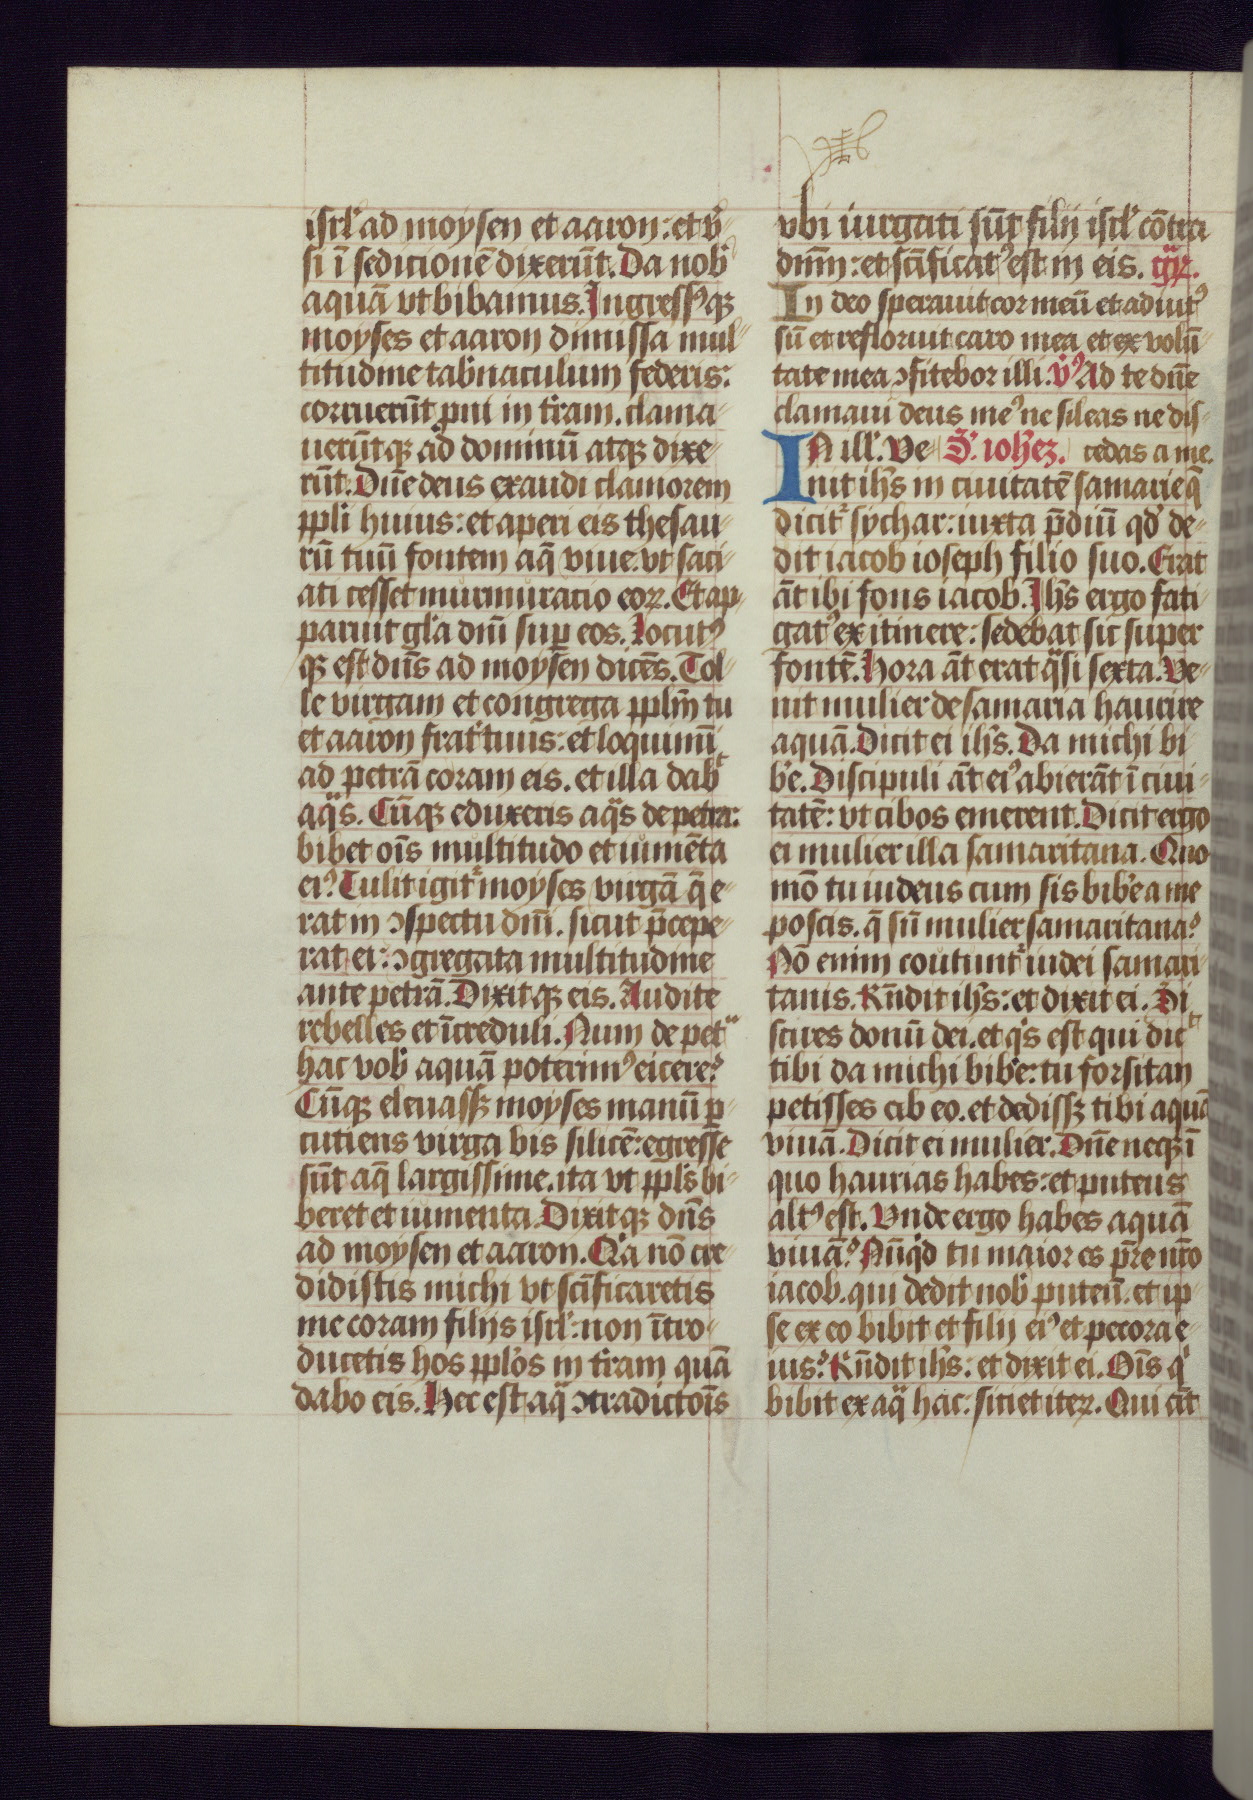 isrl' ad moysen et aaron: et v̉-
si ī sedicionē dixerūt. Da nob'
aquā vt bibamus. Ingressꝰqꝫ
moyses et aaron dimissa mul-
titudine tab'naculum federis:
corruerūt pni in t'ram. clama-
uerūtqꝫ ad dominū atqꝫ dixe-
rūt. Dn̄e deus exaudi clamorem
ppl'i huius: et aperi eis thesau-
rū tuū fontem aq̄ viue. vt saci-
ati cesset murmuracio eoꝝ. Et ap-
paruit gl'a dn̄i sup eos. Locutꝰ
qꝫ est dn̄s ad moysen dicēs. Tol-
le virgam et congrega ppl'm tu
et aaron frat' tuus: et loquimī
ad petrā coram eis. et illa dabᵗ
aqᵃs. Cūqꝫ eduxeris aqᵃs de petra:
bibet oīs multitudo et iumēta
eiꝰ. Tulit igitʳ moyses virgā q̄ e-
rat in ꝯspectu dn̄i. sicut p̄cepe-
rat ei: ꝯgregata multitudine
ante petrā. Dixitqꝫ eis. Audite
rebelles et īcreduli. Num de petᵃ
hac vob' aquā poterimꝰ eicere?
Cūqꝫ eleuassꝫ moyses manū p-
cutiens virga bis silicē: egresse
sūt aq̄ largissime. ita vt ppl's bi-
beret et iumenta. Dixitqꝫ dn̄s
ad moysen et aaron. Qᵃ nō cre-
didistis michi vt scīficaretis
me coram filijs isrl': non ītro-
ducetis hos ppl'os in t'ram quā
dabo eis. Hec est aqᵃ ꝯtradictoīs
vbi iurgati sūt filij isrl' cōtra
dn̄m: et scīficatꝰ est in eis. gᵃꝝ.
In deo sperauit cor meū et adiutꝰ
sū et refloruit caro mea et ex volū-
tate mea ꝯfitebor illi. v̉ꝰ Ad te dn̄e
clamaui deus meꝰ ne sileas ne dis-
IN ill'. Ve- S'. ioh'eꝫ. cedas a me.
nit ih's in ciuitatē samarie q̄
dicitʳ sychar: iuxta p̄diū qd' de-
dit iacob ioseph filio suo. Erat
āt ibi fons iacob. Ih's ergo fati-
gatꝰ ex itinere: sedebat sic super
fontē. Hora āt erat qᵃsi sexta. Ve-
nit mulier de samaria haurire
aquā. Dicit ei ih's. Da michi bi
b'e. Discipuli āt eiꝰ abierāt ī ciui-
tatē: vt cibos emerent. Dicit ergo
ei mulier illa samaritana. Quo
mō tu iudeus cum sis bib'e a me
poscis. q̄ sū mulier samaritana?
Nō enim coutuntʳ iudei samari-
tanis. Rn̄dit ih's: et dixit ei. Si
scires donū dei. et qⁱs est qui dicᵗ
tibi da michi bib'e: tu forsitan
petisses ab eo. et dedissꝫ tibi aquā
viuā. Dicit ei mulier. Dn̄e neqꝫ ī
quo haurias habes: et puteus
altꝰ est. Vnde ergo habes aquā
viuā? Nūqd tu maior es p̄re nr̄o
iacob. qui dedit nob' puteū. et ip-
se ex eo bibit et filij eiꝰ et pecora e-
ius? Rn̄dit ih's: et dixit ei. Oīs qⁱ
bibit ex aqᵃ hac: sitiet iteꝝ. Qui āt